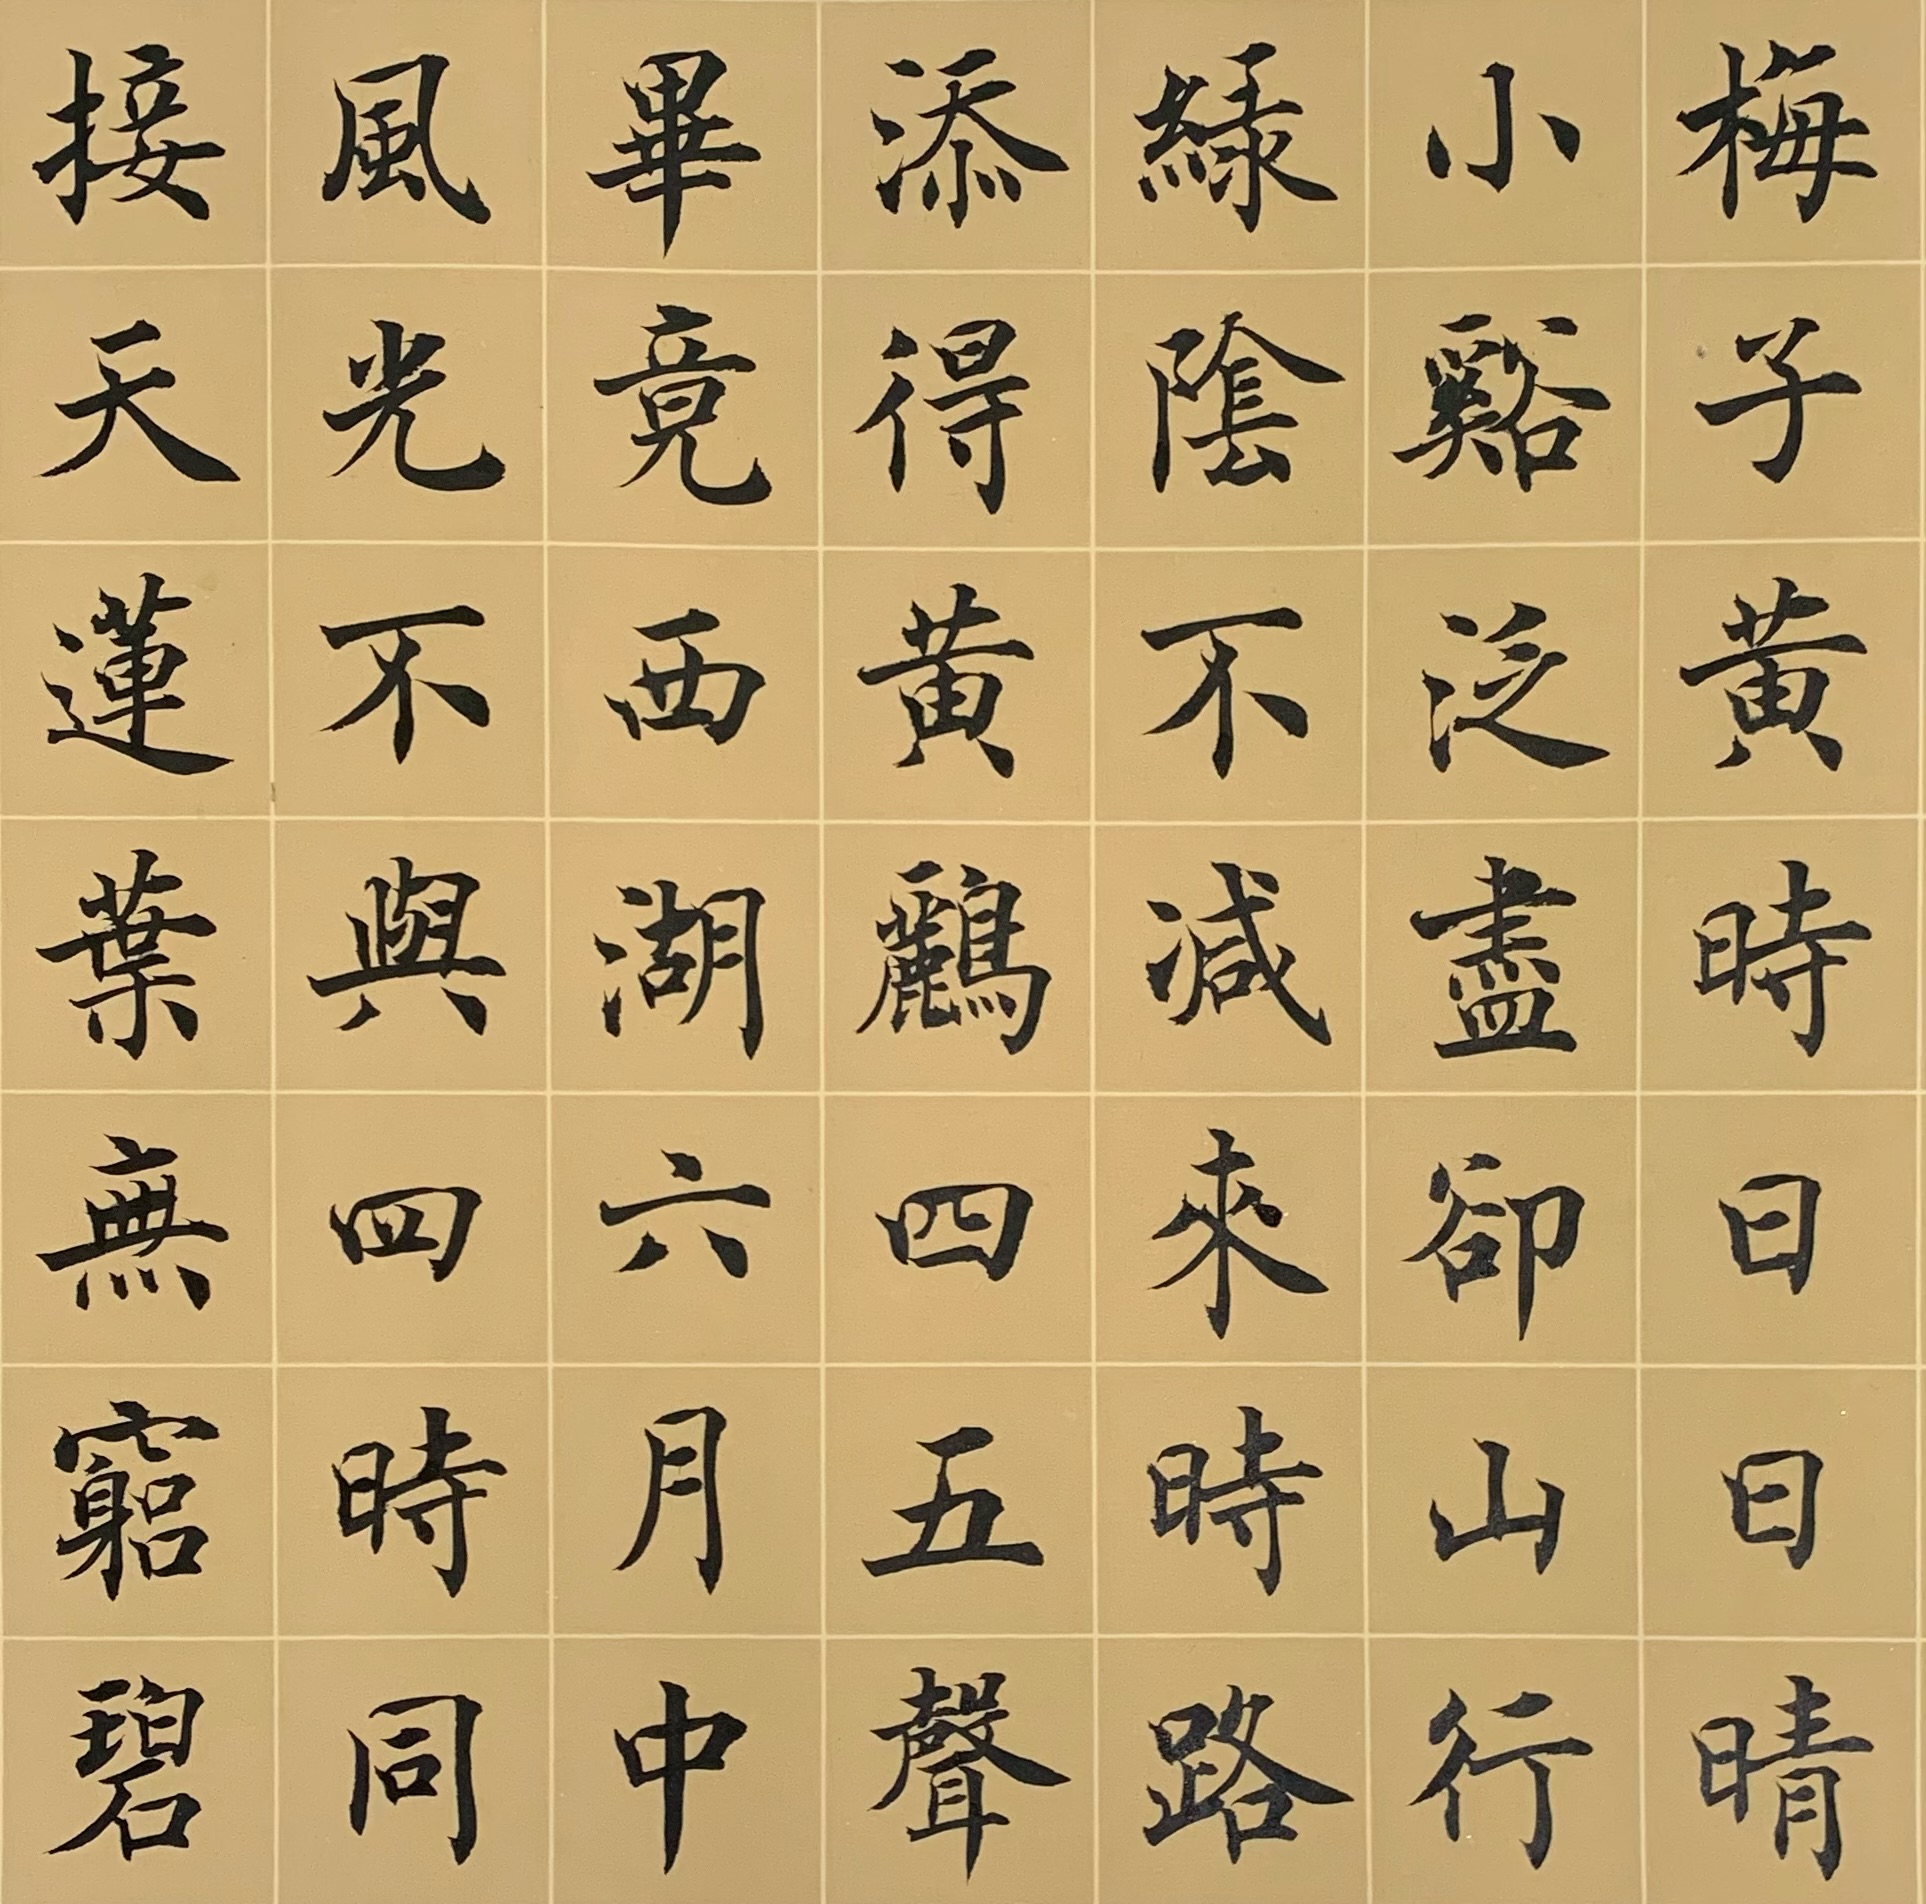 梅子黃時日日晴
小谿泛盡卻山行
緑陰不減來時路
添得黃鸝四五聲
畢竟西湖六月中
風光不與四時同
接天蓮葉無窮碧